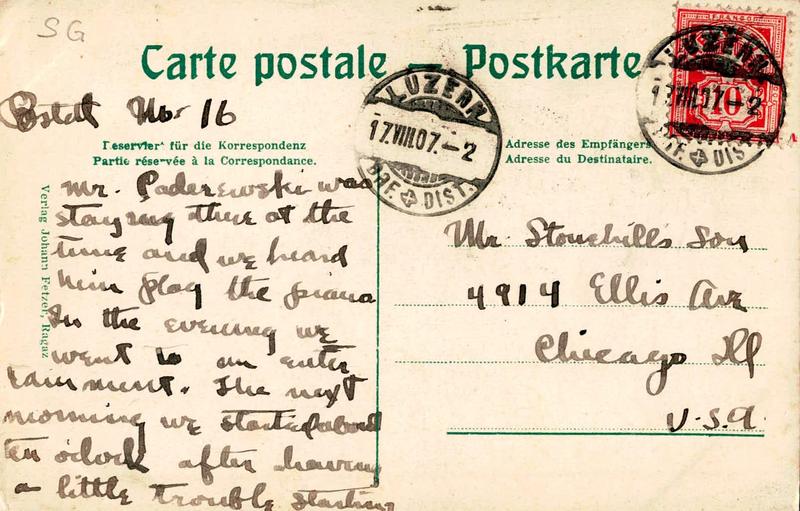 SG
Carte postale — Postkarte
FRANCO
10
LUZERN
17.VIII.07.–2
BRF. DIST.
LUZERN
17.VIII.07.–2
BRF. DIST.
Postal No. 16
Reserviert für die Korrespondenz
Partie réservée à la Correspondance.
Adresse des Empfängers
Adresse du Destinataire.
Verlag Johann Fetzer, Ragaz
Mr. Paderewski was
staying there at the
time and we heard
him play the piano
In the evening we
went to an enter
tainment. The next
morning we started about
ten o'clock after having
a little trouble starting
Mr. Stonehill's Son
4914 Ellis Ave
Chicago Ill
U.S.A.